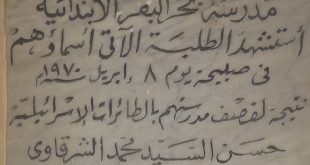 مدرسة بحر البقر الابتدائية
أستشهد الطلبة الآتى أسماؤهم
فى صبيحة يوم ٨ إبريل ١٩٧٠م
نتيجة لقصف مدرستهم بالطائرات الإسرائيلية
حسن السيد محمد الشرقاوى